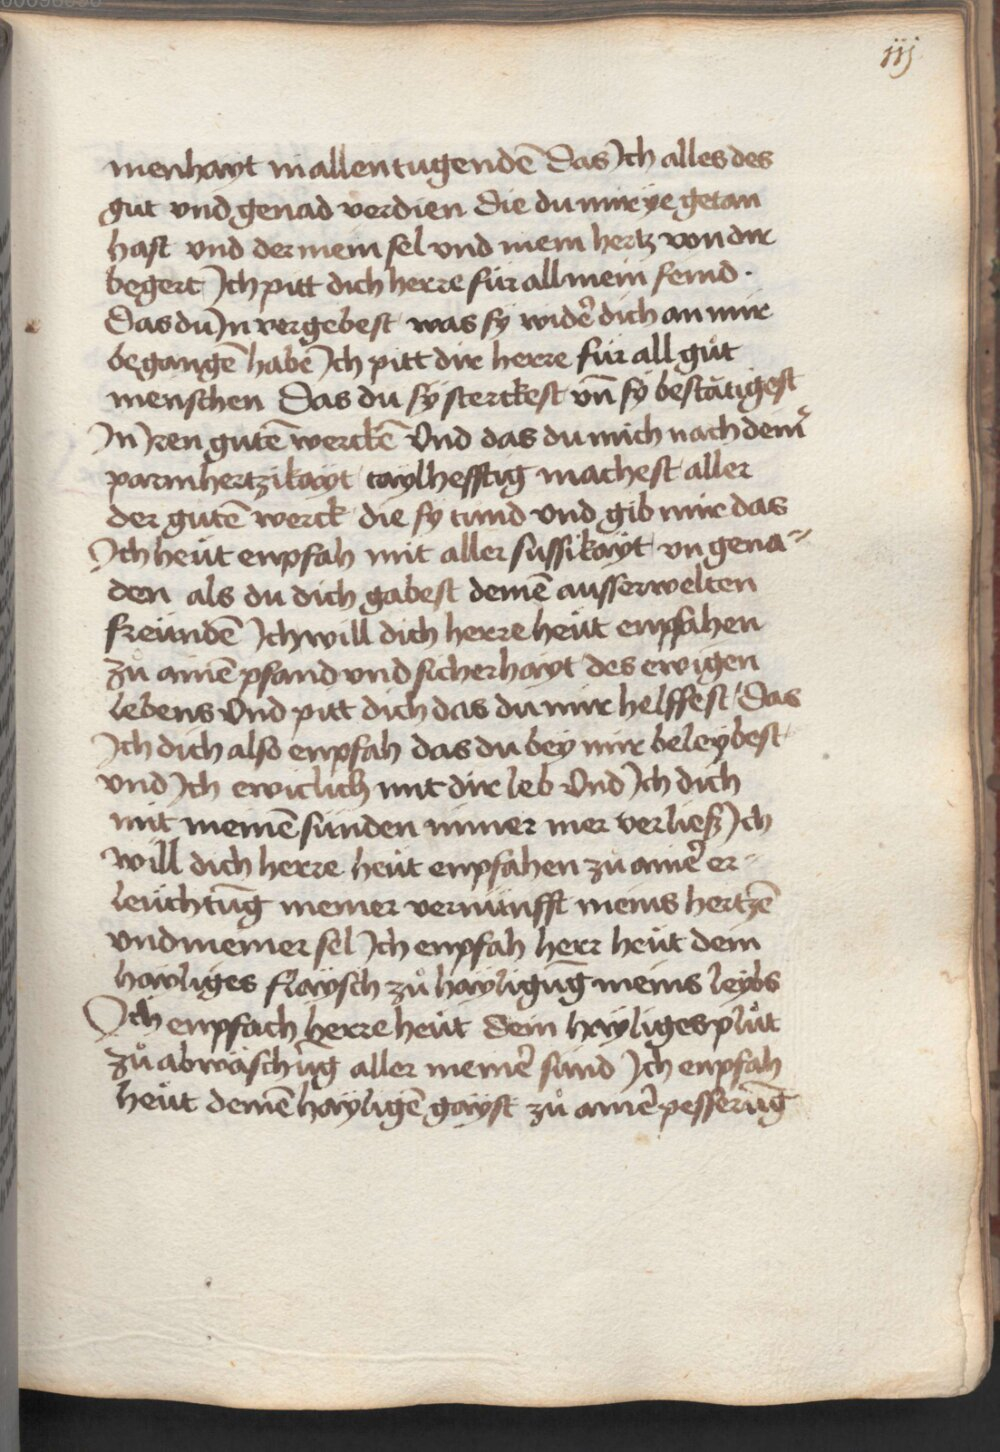 iij
menhayt in allen tugendē Das Ich alles des
gut vnd genad verdien Die du mir ye getan
hast vnd der mein sel vnd mein hertz von dir
begert Ich pitt dich herre für all mein feind .
Das du In vergebest was sy widẽ dich an mir
begangē habē Ich pitt dir herre für all gůt
menschen Das du sy sterckest vn̄ sy bestätigest
In Iren gutē werckē Vnd das du mich nach deinr̄
parmhertzikayt taylhefftig machest aller
der gutē werck die sy tund Vnd gib mir das
Ich heüt enpfah mit aller süssikayt vn gena=
den als du dich gabest deinē ausserwelten
freündē Ich will dich herre heüt empfahen
zů ainē pfand vnd sicherhayt des ewigen
lebens Vnd pitt dich das du mir helffest Das
Ich dich also enpfah das du bey mir beleybest
vnd Ich ewiclich mit dir leb Vnd Ich dich
mit meinē sünden nimer mer verließ Ich
will dich herre heüt enpfahen zů ainẽ er=
leüchtūg meiner vernunfft meins hertzē
vnd meiner sel Ich enpfah herr heüt dein
hayliges flaysch zů hayligūg meins leybs
Ich enpfach herre heüt Dein hayliges plůt
zů abwäschūg aller meinẽ sünd Ich enpfah
heüt deinē hayligē gayst zů ainẽ pesserūg